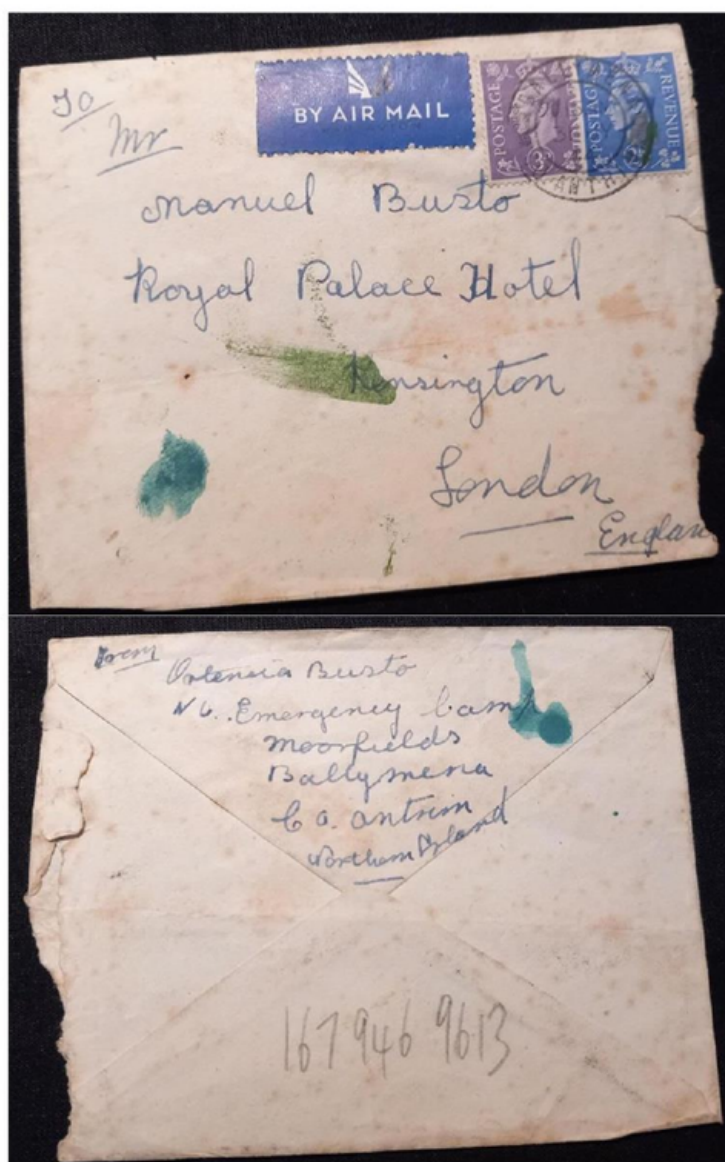 To
Mr
BY AIR MAIL
POSTAGE 3D
POSTAGE REVENUE
Manuel Busto
Royal Palace Hotel
Kensington
London
Englan
From
Ortensia Busto
Emergency Camp
Moorfields
Ballymena
Co. Antrim
Northern Ireland
167 946 9613